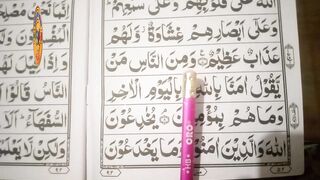 اللّٰهُ عَلٰى قُلُوْبِهِمْ وَعَلٰى سَمْعِهِمْ ؕ
وَعَلٰٓى اَبْصَارِهِمْ غِشَاوَةٌ ؗ وَّلَهُمْ
عَذَابٌ عَظِيْمٌ ۧ وَمِنَ النَّاسِ مَنْ
يَّقُوْلُ اٰمَنَّا بِاللّٰهِ وَبِالْيَوْمِ الْاٰخِرِ
وَمَا هُمْ بِمُؤْمِنِيْنَ ۘ يُخٰدِعُوْنَ
اللّٰهَ وَالَّذِيْنَ اٰمَنُوْا ۚ وَمَا يَخْدَعُوْنَ
ORO
اِنَّمَا نَحْنُ
وَاِذَا قِيْلَ
النَّاسُ قَالُوْٓا
السُّفَهَآءُ ؕ
وَلٰكِنْ لَّا